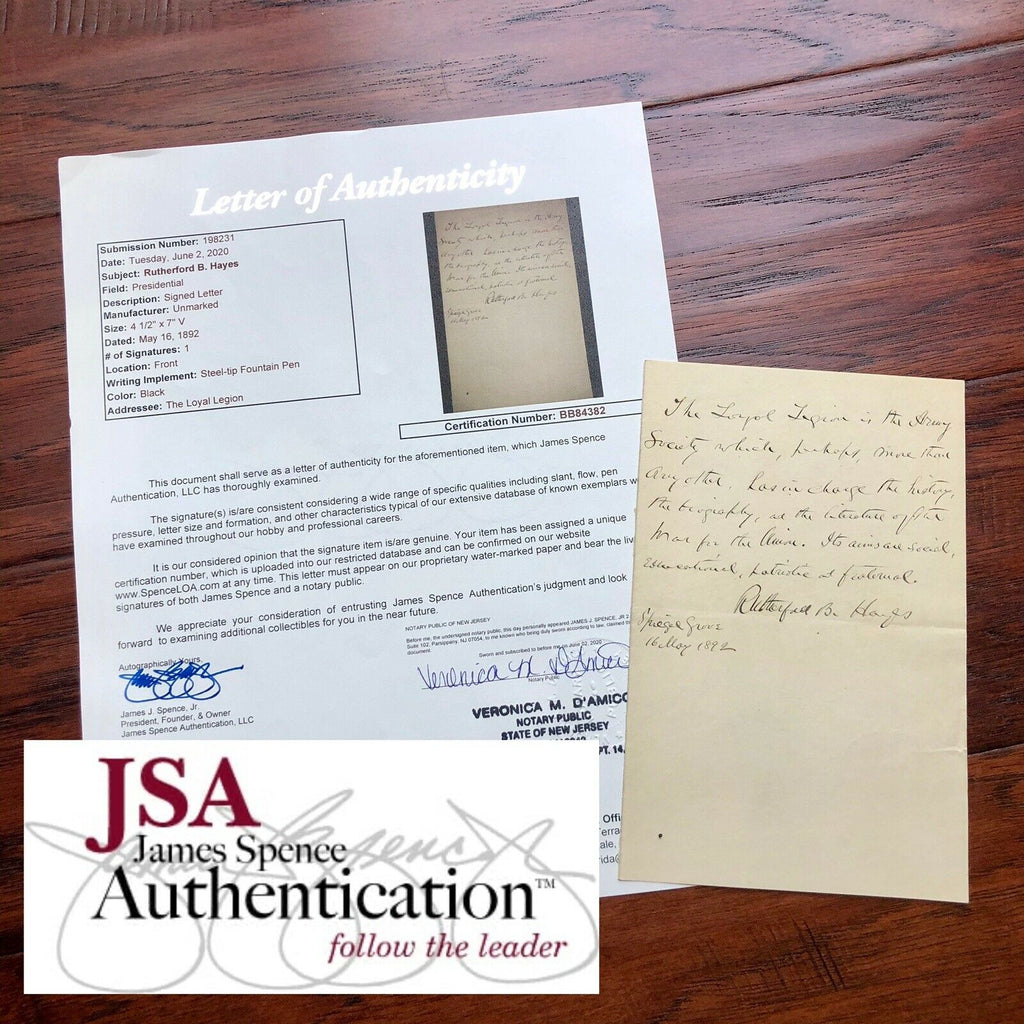 Letter of Authenticity
Submission Number: 198231
Date: Tuesday, June 2, 2020
Subject: Rutherford B. Hayes
Field: Presidential
Description: Signed Letter
Manufacturer: Unmarked
Size: 4 1/2" x 7" V
Dated: May 16, 1892
# of Signatures: 1
Location: Front
Writing Implement: Steel-tip Fountain Pen
Color: Black
Addressee: The Loyal Legion
The Loyal Legion is the Army
Society which, perhaps, more than
any other, has in charge the history,
the biography, and the literature of the
War for the Union. Its aims are social,
educational, patriotic & fraternal.
Rutherford B. Hayes
Spiegel Grove
16 May 1892
Certification Number: BB84382
This document shall serve as a letter of authenticity for the aforementioned item, which James Spence
Authentication, LLC has thoroughly examined.
The signature(s) is/are consistent considering a wide range of specific qualities including slant, flow, pen
pressure, letter size and formation, and other characteristics typical of our extensive database of known exemplars w
have examined throughout our hobby and professional careers.
It is our considered opinion that the signature item is/are genuine. Your item has been assigned a unique
certification number, which is uploaded into our restricted database and can be confirmed on our website
www.SpenceLOA.com at any time. This letter must appear on our proprietary water-marked paper and bear the liv
signatures of both James Spence and a notary public.
We appreciate your consideration of entrusting James Spence Authentication's judgment and look
forward to examining additional collectibles for you in the near future.
Autographically Yours,
James J. Spence, Jr.
President, Founder, & Owner
James Spence Authentication, LLC
NOTARY PUBLIC OF NEW JERSEY
Before me, the undersigned notary public, this day personally appeared JAMES J. SPENCE, JR
Suite 102, Parsippany, NJ 07054, to me known who being duly sworn according to law, claimed
document.
Sworn and subscribed to before me on June 02, 2020
Veronica M. D'Amico
Notary Public
VERONICA M. D'AMICO
NOTARY PUBLIC
STATE OF NEW JERSEY
PT. 14,
Offi
Terra
ale,
rida@
The Loyal Legion is the Army
Society which, perhaps, more than
any other, has in charge the history,
the biography, and the literature of the
War for the Union. Its aims are social,
educational, patriotic & fraternal.
Rutherford B. Hayes
Spiegel Grove
16 May 1892
JSA
James Spence
Authentication™
follow the leader